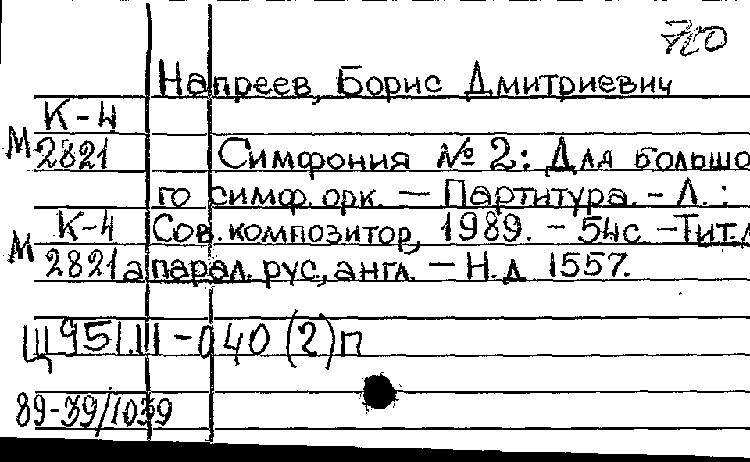 720
Напреев, Борис Дмитриевич
К-4
М 2821 Симфония № 2: Для большо
го симф. орк. — Партитура. - Л. :
М К-4 Сов. композитор, 1989. - 54с. - Тит. л
2821 а парал. рус, англ. — Н. д 1557.
Щ951.III-040 (2)п
89-39/1039